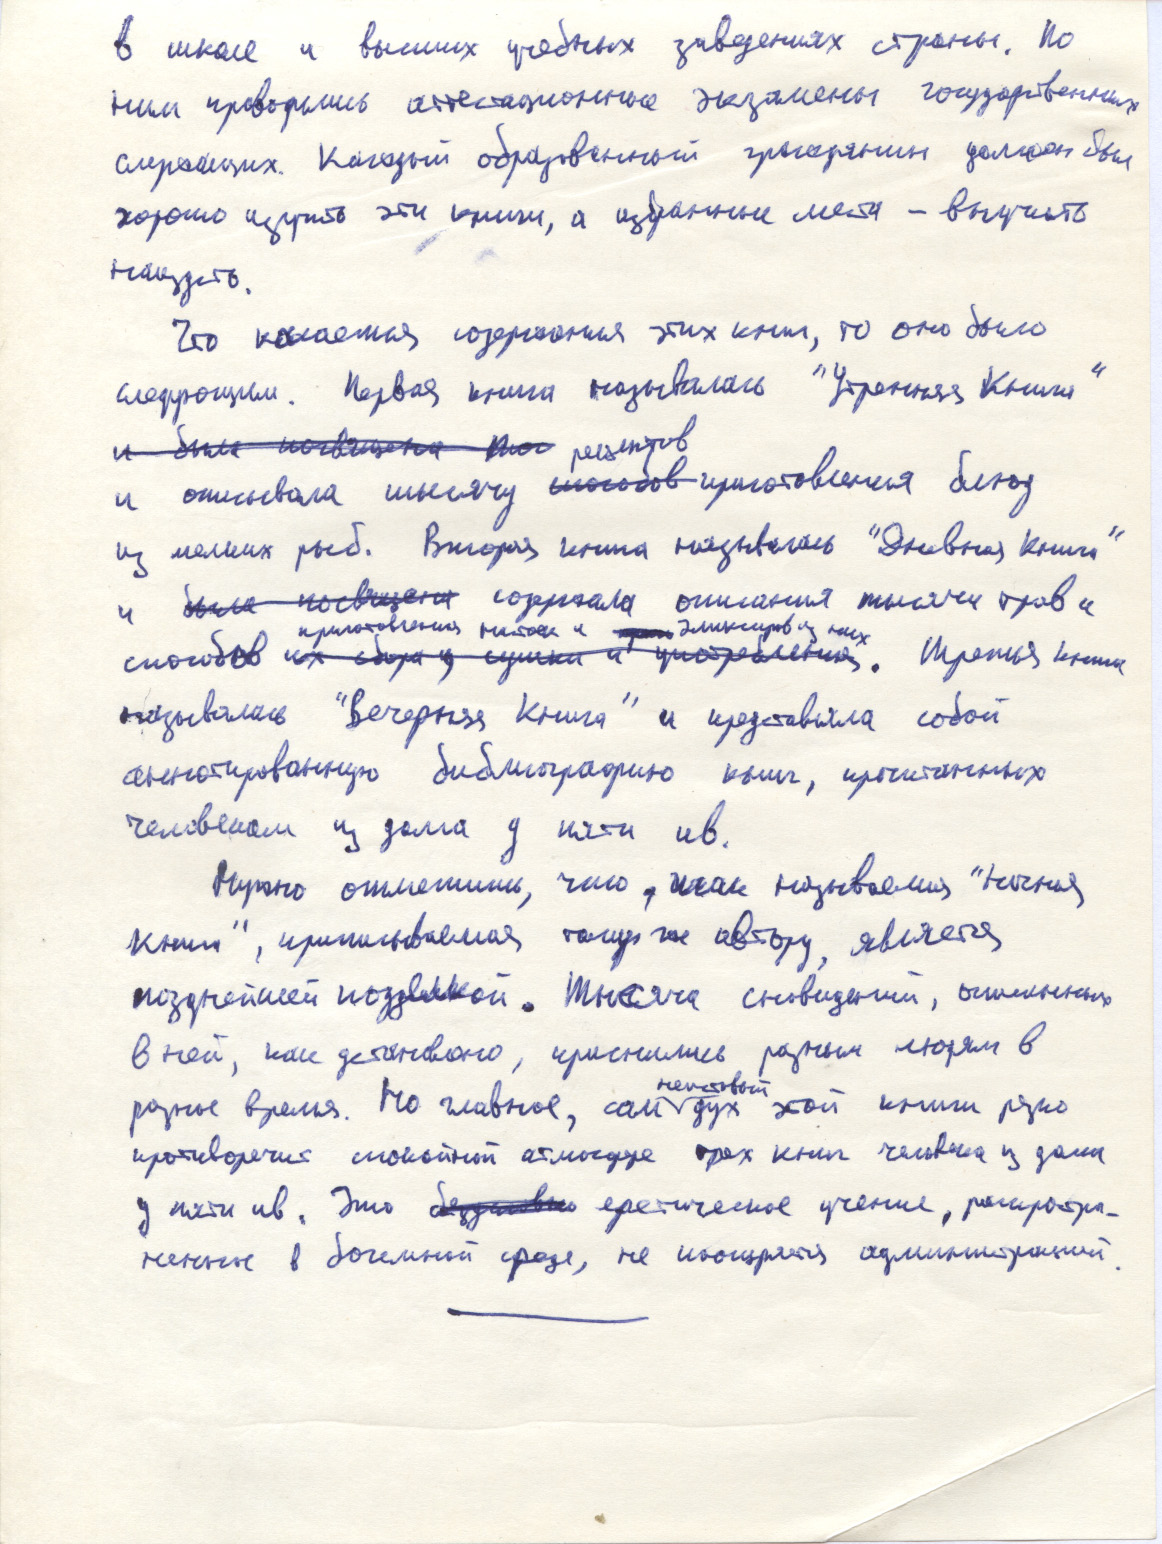 в школе и высших учебных заведениях страны. По
ним проводились аттестационные экзамены государственных
служащих. Каждый образованный гражданин должен был
хорошо изучить эти книги, а избранные места – выучить
наизусть.
Что касается содержания этих книг, то оно было
следующим. Первая книга называлась "Утренняя Книга"
и была посвящена
рецептов
и описывала тысячу способов приготовления блюд
из мелких рыб. Вторая книга называлась "Дневная Книга"
и была посвящена содержала описания тысячи трав и
приготовления настоек и эликсиров из них
способов их сбора, сушки и употребления. Третья книга
называлась "Вечерняя Книга" и представляла собой
аннотированную библиографию книг, прочитанных
человеком из дома у пяти ив.
Нужно отметить, что, так называемая "Ночная
Книга", приписываемая тому же автору, является
позднейшей подделкой. Тысяча сновидений, описанных
в ней, как установлено, приснились разным людям в
разное время. Но главное, сам
неистовый
дух этой книги резко
противоречит спокойной атмосфере трех книг человека из дома
у пяти ив. Это еретическое учение, распростра-
ненное в богемной среде, не поощряется администрацией.